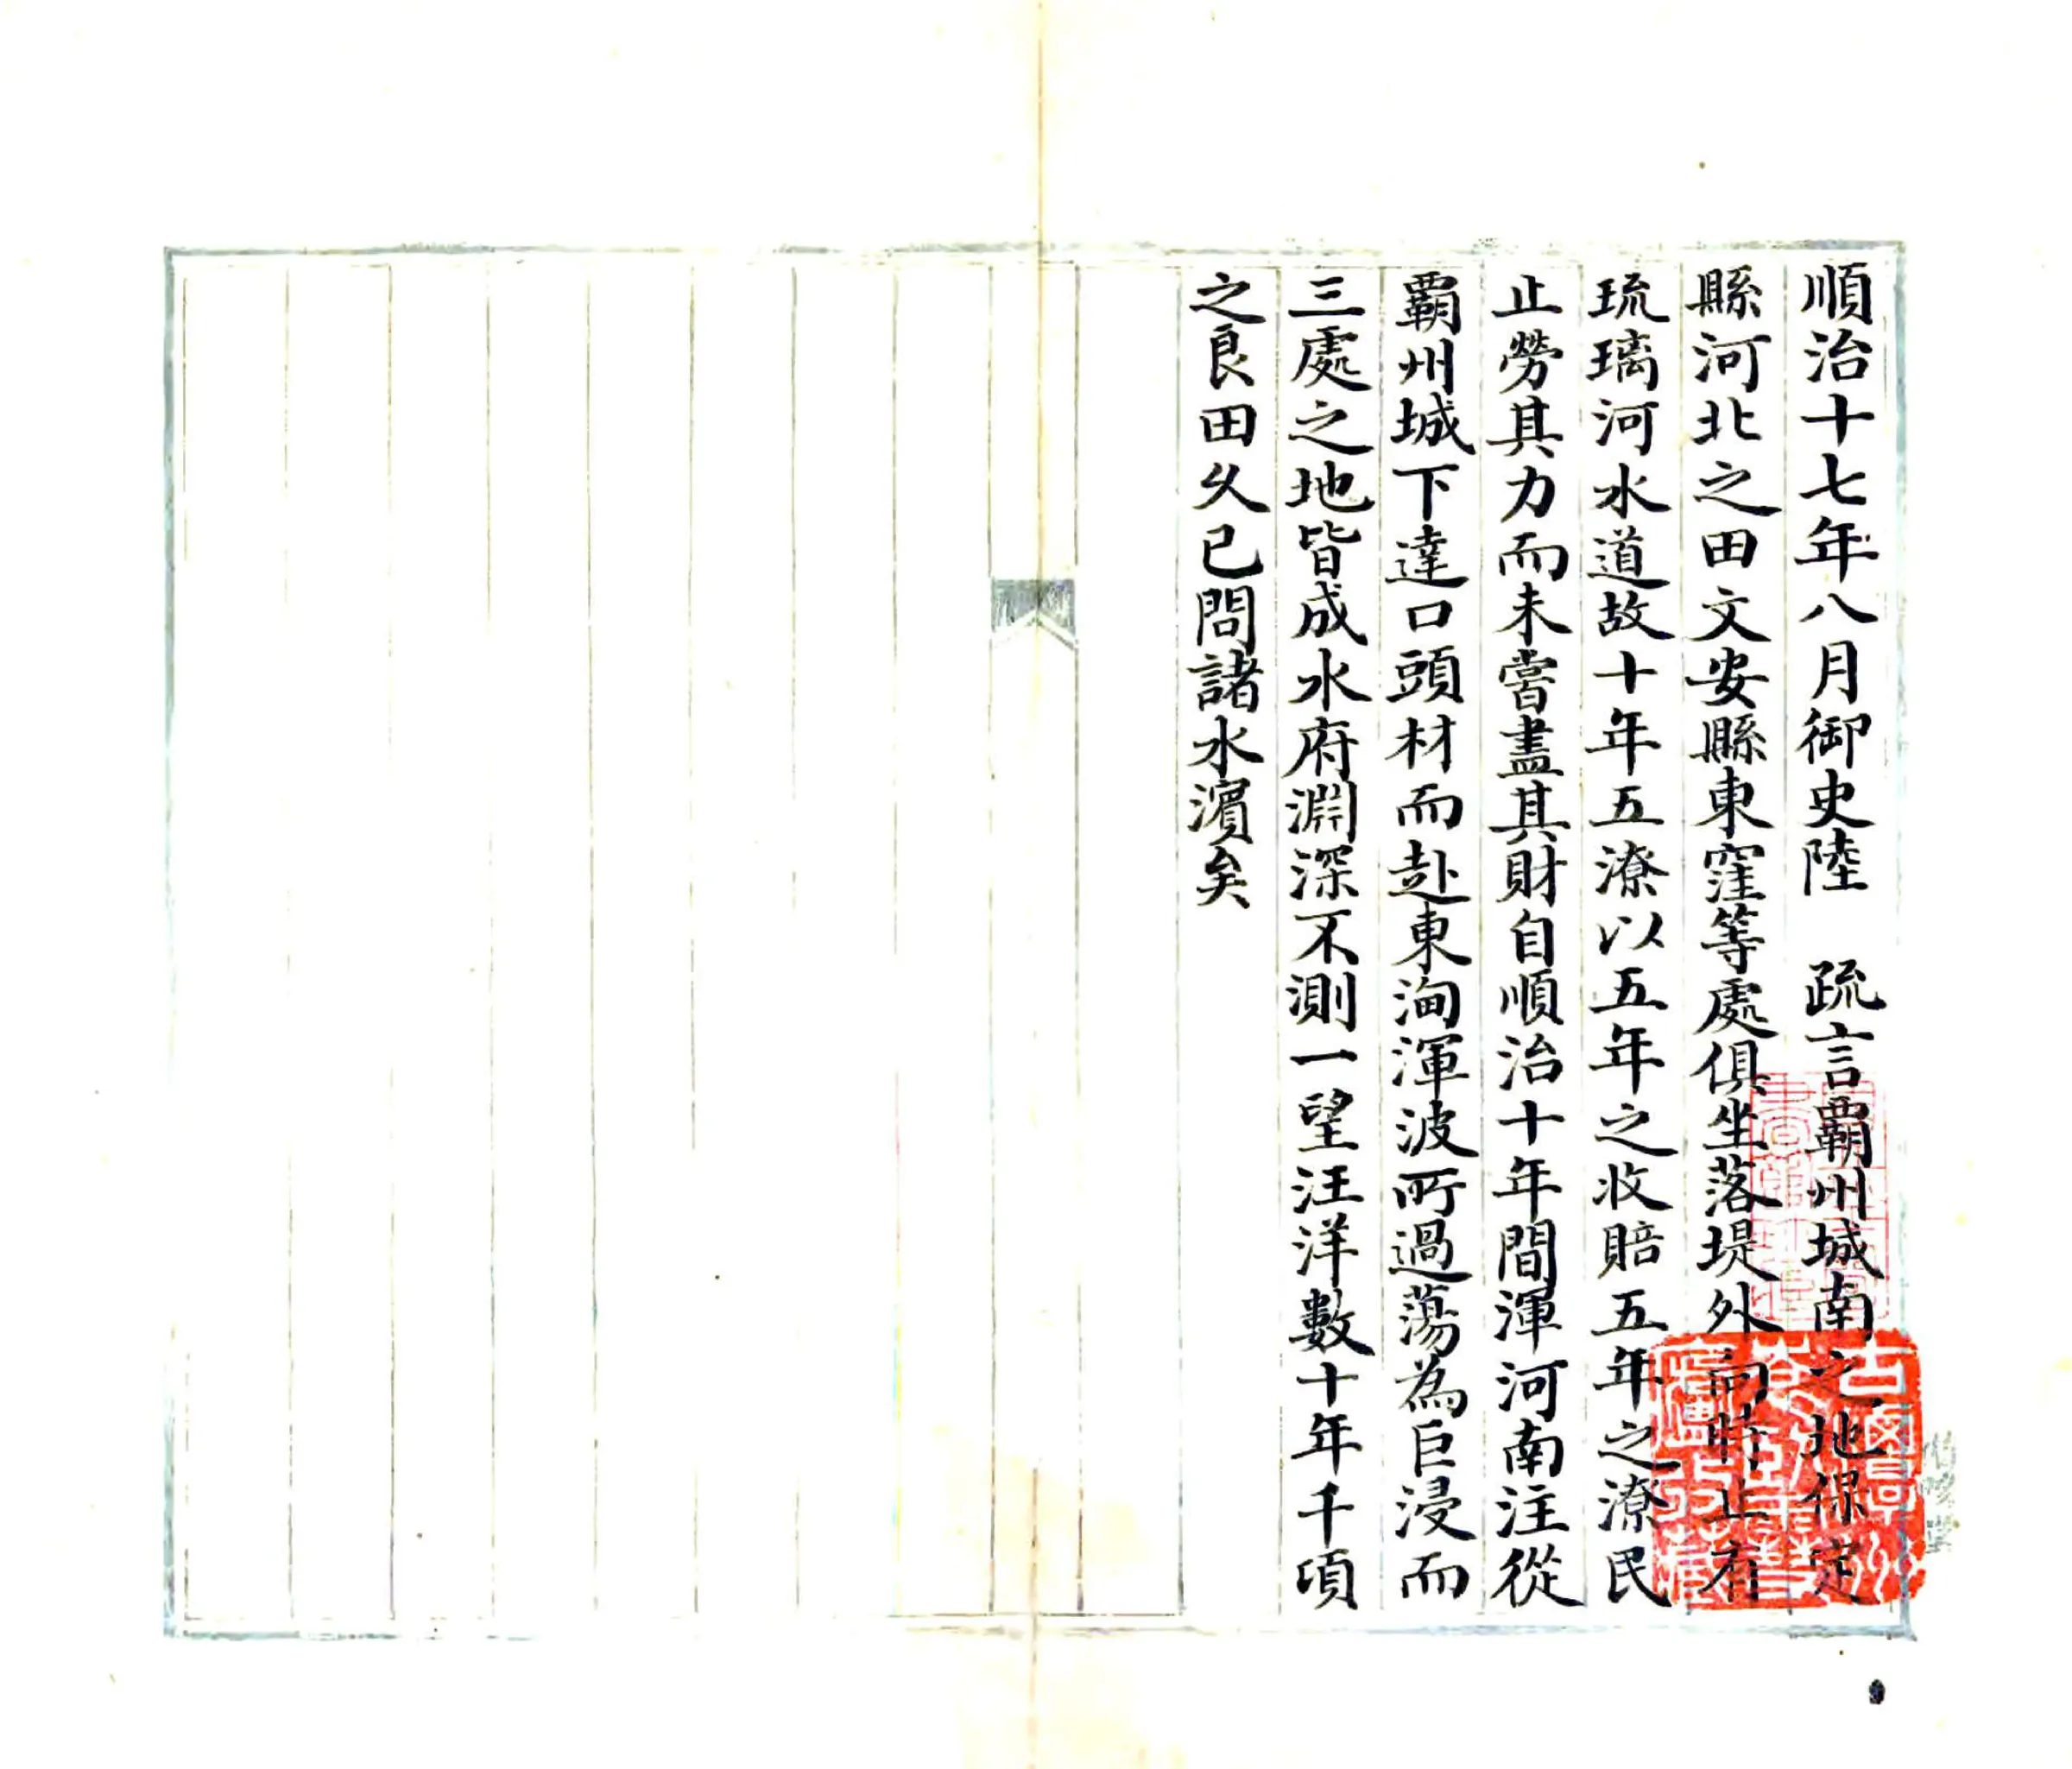 順治十七年八月御史陸　疏言覇州城南之地保定
縣河北之田文安縣東窪等處俱坐落堤外向時止有
琉璃河水道故十年五潦以五年之收賠五年之潦民
止勞其力而未嘗盡其財自順治十年間渾河南注從
覇州城下達口頭材而赴東洶渾波所過蕩為巨浸而
三處之地皆成水府淵深不測一望汪洋數十年千項
之良田久已問諸水濱矣